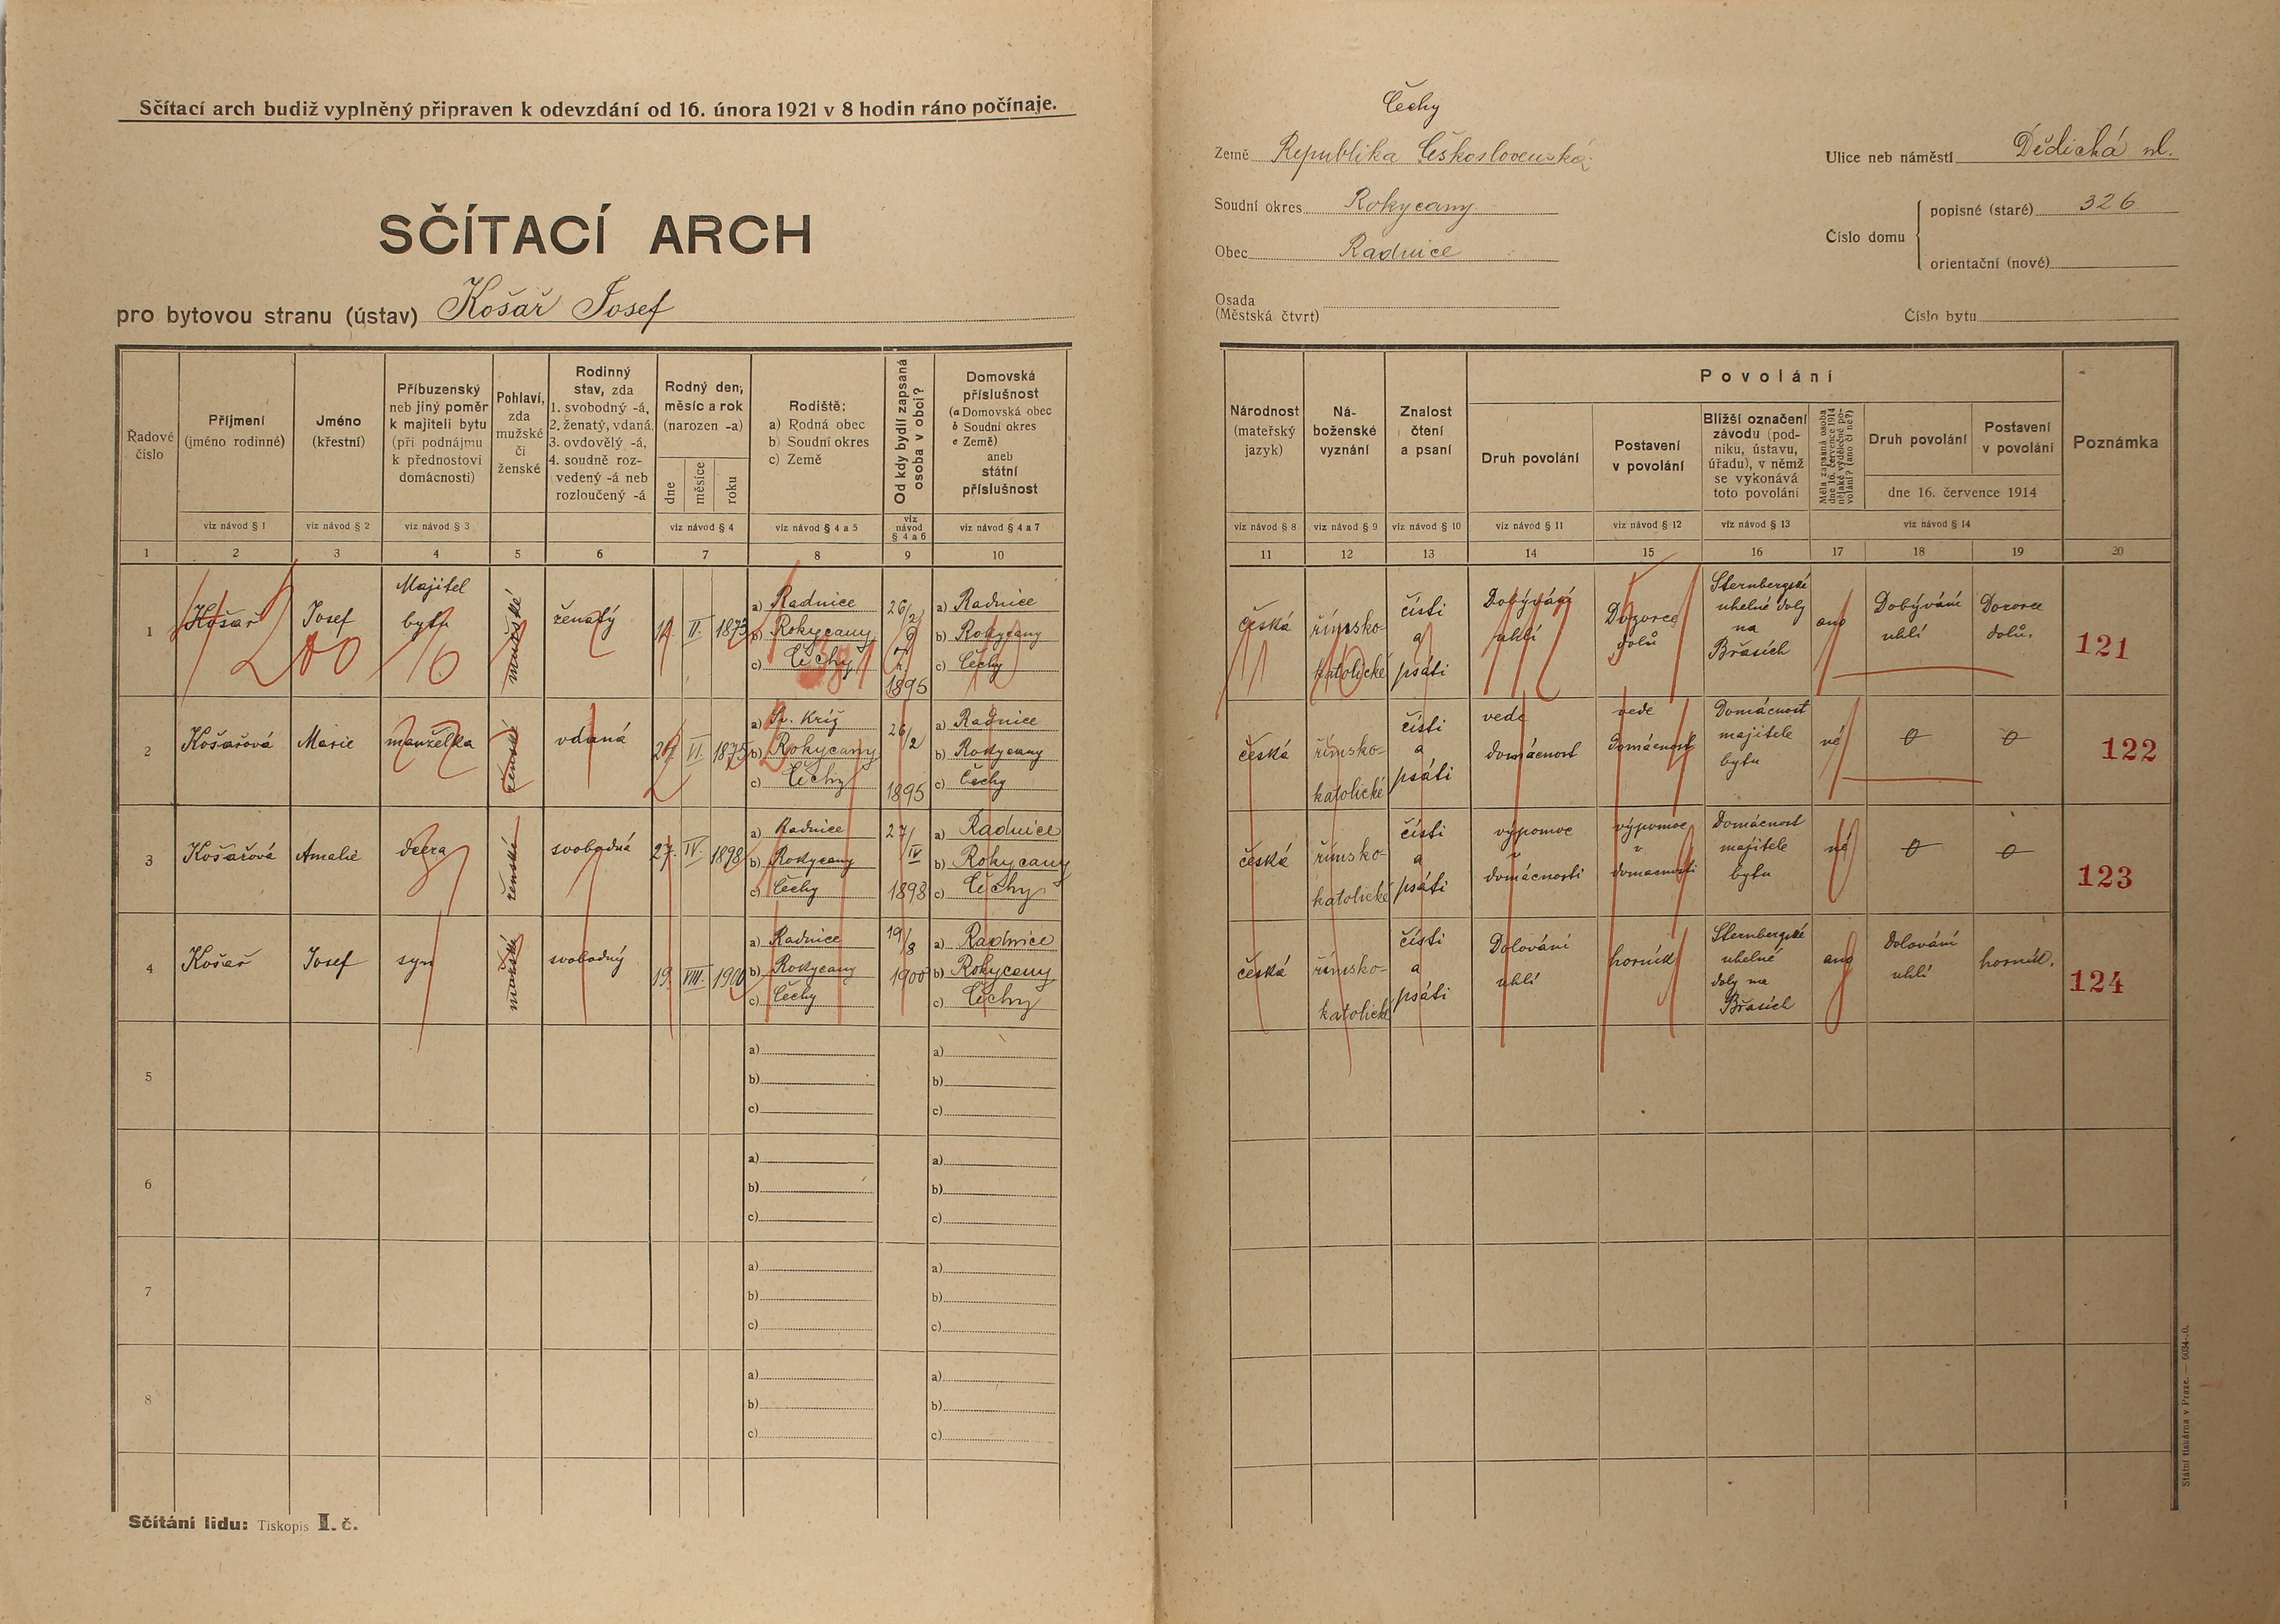 Sčítací arch budiž vyplněný připraven k odevzdání od 16. února 1921 v 8 hodin ráno počínaje.
SČÍTACÍ ARCH
pro bytovou stranu (ústav) Košař Josef
Čechy
Země Republika Československá
Soudní okres Rokycany
Obec Radnice
Osada
(Městská čtvrt)
Ulice neb náměstí Dědická ul.
Číslo domu
popisné (staré) 326
orientační (nové)
Číslo bytu
Řadové číslo
Příjmení (jméno rodinné)
Jméno (křestní)
Příbuzenský neb jiný poměr k majiteli bytu (při podnájmu k přednostovi domácnosti)
Pohlaví, zda mužské či ženské
Rodinný stav, zda 1. svobodný -á, 2. ženatý, vdaná, 3. ovdovělý -á, 4. soudně rozvedený -á neb rozloučený -á
Rodný den, měsíc a rok (narozen -a)
dne měsíce roku
Rodiště: a) Rodná obec b) Soudní okres c) Země
Od kdy bydlí zapsaná osoba v obci?
Domovská příslušnost (a Domovská obec b Soudní okres c Země) aneb státní příslušnost
Národnost (mateřský jazyk)
Náboženské vyznání
Znalost čtení a psaní
Povolání
Druh povolání
Postavení v povolání
Bližší označení závodu (podniku, ústavu, úřadu), v němž se vykonává toto povolání
Měla zapsaná osoba dne 16. července 1914 nějaké výdělečné povolání? (ano či ne?)
Druh povolání
Postavení v povolání
dne 16. července 1914
Poznámka
viz návod § 1 viz návod § 2 viz návod § 3 viz návod § 4 viz návod § 4 a 5 viz návod § 4 a 6 viz návod § 4 a 7
viz návod § 8 viz návod § 9 viz návod § 10 viz návod § 11 viz návod § 12 viz návod § 13 viz návod § 14
1 2 3 4 5 6 7 8 9 10 11 12 13 14 15 16 17 18 19 20
1 Košař Josef Majitel bytu mužské ženatý II. 1873 a) Radnice b) Rokycany c) Čechy 26/2 1895 a) Radnice b) Rokycany c) Čechy
česká římsko-katolické čísti a psáti Dobývání uhlí Dozorce dolů Sternbergské uhelné doly na Břasích ano Dobývání uhlí Dozorce dolů. 121
2 Košařová Marie manželka ženské vdaná VI. 1875 a) Sv. Kříž b) Rokycany c) Čechy 26/2 1895 a) Radnice b) Rokycany c) Čechy
česká římsko-katolické čísti a psáti vede domácnost vede domácnost Domácnost majitele bytu né 0 0 122
3 Košařová Amalie dcera ženské svobodná 27. IV. 1898 a) Radnice b) Rokycany c) Čechy 27/IV 1898 a) Radnice b) Rokycany c) Čechy
česká římsko-katolické čísti a psáti výpomoc v domácnosti výpomoc v domacnosti Domácnost majitele bytu né 0 0 123
4 Košař Josef syn mužské svobodný 19. VIII. 1900 a) Radnice b) Rokycany c) Čechy 19/8 1900 a) Radnice b) Rokycany c) Čechy
česká římsko-katolické čísti a psáti Dolování uhlí horník Sternbergské uhelné doly na Břasích ano Dolování uhlí horník. 124
5 a) b) c) a) b) c)
6 a) b) c) a) b) c)
7 a) b) c) a) b) c)
8 a) b) c) a) b) c)
Sčítání lidu: Tiskopis I. č.
Státní tiskárna v Praze. — 6034-20.